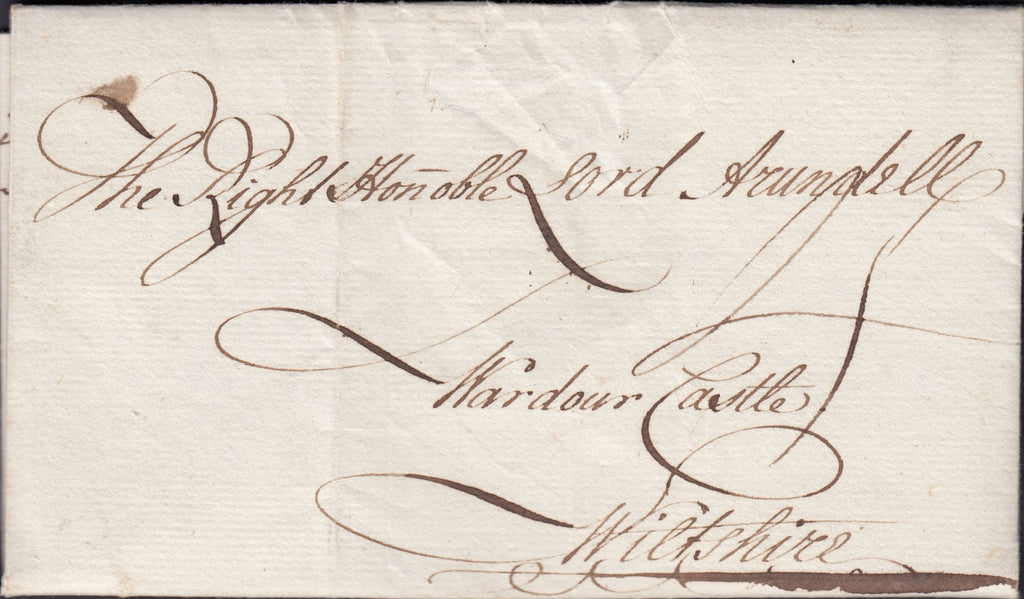 The Right Hon̄oble Lord Arundell
Wardour Castle
Wiltshire